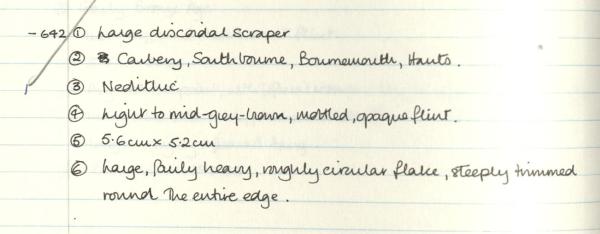 -642 ① Large discoidal scraper
② Carbery, Southbourne, Bournemouth, Hants.
③ Neolithic
④ Light to mid-grey-brown, mottled, opaque flint.
⑤ 5.6cm x 5.2cm
⑥ Large, fairly heavy, roughly circular flake, steeply trimmed
round the entire edge.